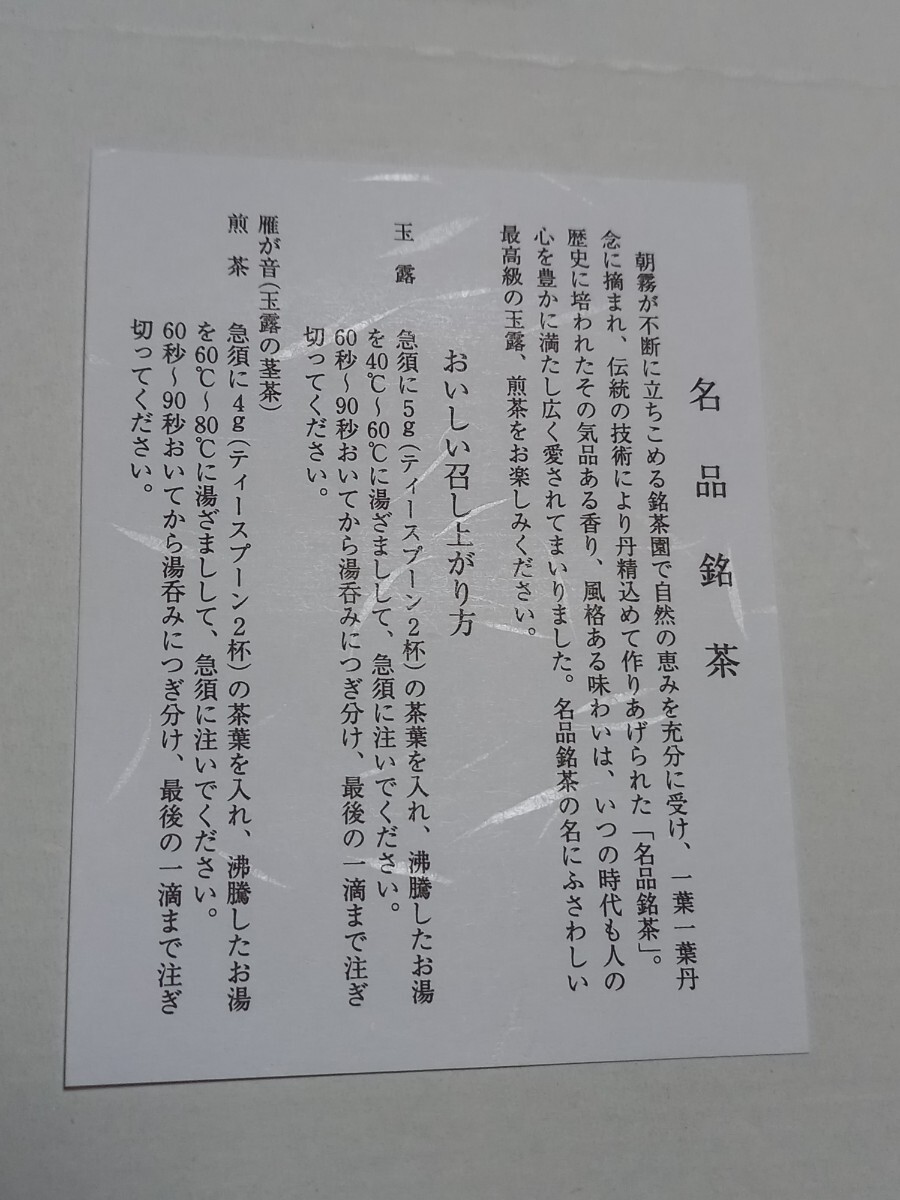 名品銘茶
朝霧が不断に立ちこめる銘茶園で自然の恵みを充分に受け、一葉一葉丹
念に摘まれ、伝統の技術により丹精込めて作りあげられた「名品銘茶」。
歴史に培われたその気品ある香り、風格ある味わいは、いつの時代も人の
心を豊かに満たし広く愛されてまいりました。名品銘茶の名にふさわしい
最高級の玉露、煎茶をお楽しみください。
おいしい召し上がり方
玉露
急須に5g(ティースプーン2杯)の茶葉を入れ、沸騰したお湯
を40℃～60℃に湯ざましして、急須に注いでください。
60秒～90秒おいてから湯呑みにつぎ分け、最後の一滴まで注ぎ
切ってください。
雁が音(玉露の茎茶)
煎茶
急須に4g(ティースプーン2杯)の茶葉を入れ、沸騰したお湯
を60℃～80℃に湯ざましして、急須に注いでください。
60秒～90秒おいてから湯呑みにつぎ分け、最後の一滴まで注ぎ
切ってください。